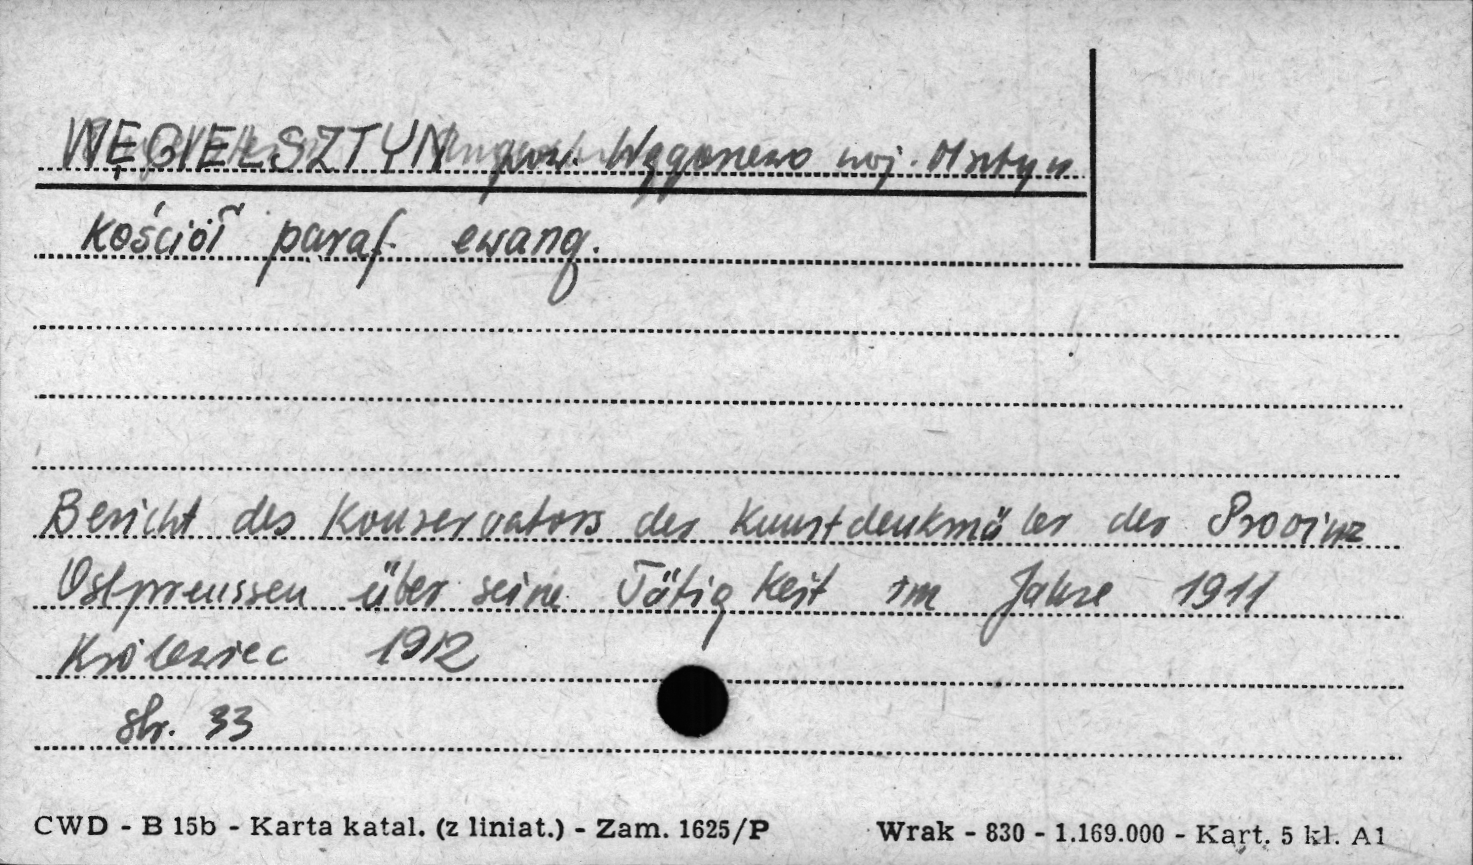 WĘGIELSZTYN pow. Węgorzewo woj. Olsztyn
Kościół paraf. ewang.
Bericht des Konservators der Kunstdenkmäler der Provinz
Ostpreussen über seine Tätigkeit im Jahre 1911
Królewiec 1912
str. 33
CWD - B 15b - Karta katal. (z liniat.) - Zam. 1625/P Wrak - 830 - 1.169.000 - Kart. 5 kl. A1